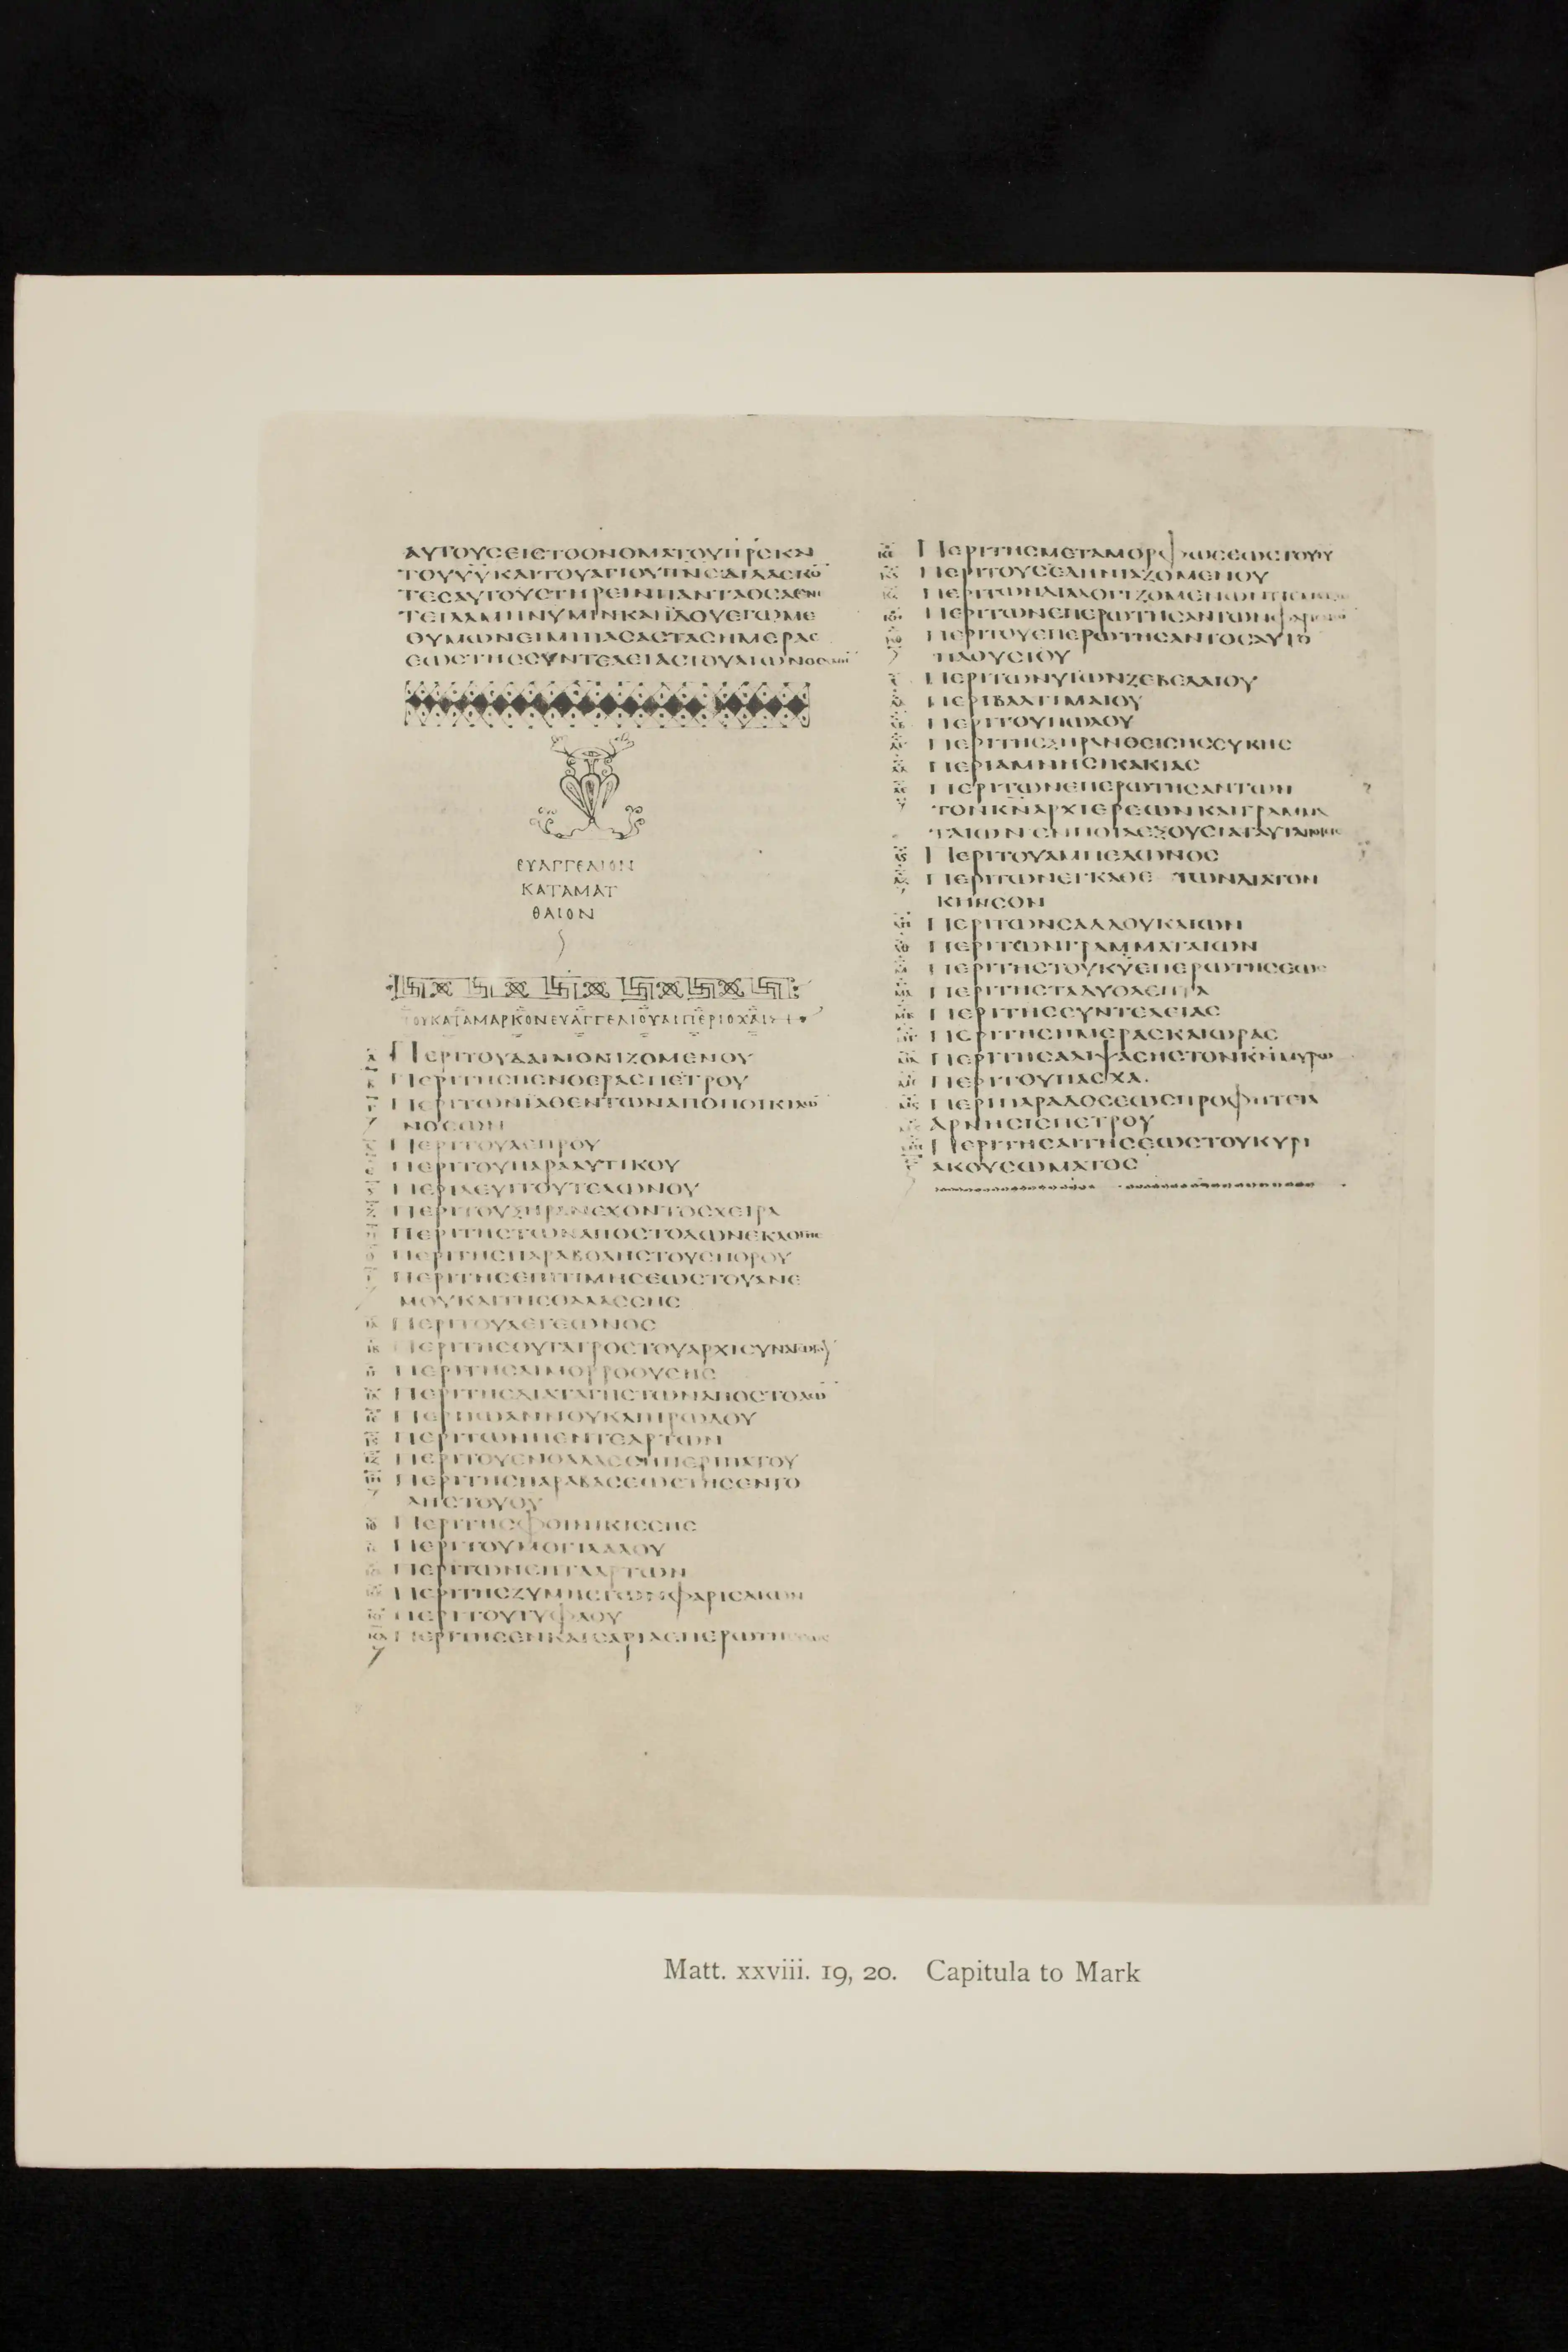 ΑΥΤΟΥϹΕΙϹΤΟΟΝΟΜΑΤΟΥΠΡ̅ϹΚΑΙ
ΤΟΥΥΥ̅ΚΑΙΤΟΥΑΓΙΟΥΠΝ̅ϹΔΙΔΑϹΚΟ̅
ΤΕϹΑΥΤΟΥϹΤΗΡΕΙΝΠΑΝΤΑΟϹΑΕΝΕ
ΤΕΙΛΑΜΗΝΥΜΙΝΚΑΙΪΔΟΥΕΓΩΜΕ
ΘΥΜΩΝΕΙΜΙΠΑϹΑϹΤΑϹΗΜΕΡΑϹ
ΕΩϹΤΗϹϹΥΝΤΕΛΕΙΑϹΤΟΥΑΙΩΝΟϹΑΜΗ̅
ΕΥΑΓΓΕΛΙΟΝ
ΚΑΤΑΜΑΤ
ΘΑΙΟΝ
ΤΟΥΚΑΤΑΜΑΡΚΟΝΕΥΑΓΓΕΛΙΟΥΑΙΠΕΡΙΟΧΑΙ
Α̅ ΠΕΡΙΤΟΥΔΑΙΜΟΝΙΖΟΜΕΝΟΥ
Β̅ ΠΕΡΙΤΗϹΠΕΝΘΕΡΑϹΠΕΤΡΟΥ
Γ̅ ΠΕΡΙΤΩΝΪΑΘΕΝΤΩΝΑΠΟΠΟΙΚΙΛΩ̅
ΝΟϹΩΝ
Δ̅ ΠΕΡΙΤΟΥΛΕΠΡΟΥ
Ε̅ ΠΕΡΙΤΟΥΠΑΡΑΛΥΤΙΚΟΥ
Ϛ̅ ΠΕΡΙΛΕΥΙΤΟΥΤΕΛΩΝΟΥ
Ζ̅ ΠΕΡΙΤΟΥΞΗΡΑΝΕΧΟΝΤΟϹΧΕΙΡΑ
Η̅ ΠΕΡΙΤΗϹΤΩΝΑΠΟϹΤΟΛΩΝΕΚΛΟΓΗϹ
Θ̅ ΠΕΡΙΤΗϹΠΑΡΑΒΟΛΗϹΤΟΥϹΠΟΡΟΥ
Ι̅ ΠΕΡΙΤΗϹΕΠΙΤΙΜΗϹΕΩϹΤΟΥΑΝΕ
ΜΟΥΚΑΙΤΗϹΘΑΛΑϹϹΗϹ
ΙΑ̅ ΠΕΡΙΤΟΥΛΕΓΕΩΝΟϹ
ΙΒ̅ ΠΕΡΙΤΗϹΘΥΓΑΤΡΟϹΤΟΥΑΡΧΙϹΥΝΑΓΩΓΟΥ
ΙΓ̅ ΠΕΡΙΤΗϹΑΙΜΟΡΡΟΟΥϹΗϹ
ΙΔ̅ ΠΕΡΙΤΗϹΔΙΑΤΑΓΗϹΤΩΝΑΠΟϹΤΟΛΩ̅
ΙΕ̅ ΠΕΡΙΪΩΑΝΝΟΥΚΑΙΗΡΩΔΟΥ
ΙϚ̅ ΠΕΡΙΤΩΝΠΕΝΤΕΑΡΤΩΝ
ΙΖ̅ ΠΕΡΙΤΟΥΕΝΘΑΛΑϹϹΗΠΕΡΙΠΑΤΟΥ
ΙΗ̅ ΠΕΡΙΤΗϹΠΑΡΑΒΑϹΕΩϹΤΗϹΕΝΤΟ
ΛΗϹΤΟΥΘΥ̅
ΙΘ̅ ΠΕΡΙΤΗϹΦΟΙΝΙΚΙϹϹΗϹ
Κ̅ ΠΕΡΙΤΟΥΜΟΓΙΛΑΛΟΥ
ΚΑ̅ ΠΕΡΙΤΩΝΕΠΤΑΑΡΤΩΝ
ΚΒ̅ ΠΕΡΙΤΗϹΖΥΜΗϹΤΩΝΦΑΡΙϹΑΙΩΝ
ΚΓ̅ ΠΕΡΙΤΟΥΤΥΦΛΟΥ
ΚΔ̅ ΠΕΡΙΤΗϹΕΝΚΑΙϹΑΡΙΑϹΠΕΡΩΤΗϹΕΩϹ
ΚΕ̅ ΠΕΡΙΤΗϹΜΕΤΑΜΟΡΦΩϹΕΩϹΤΟΥΙΥ̅
ΚϚ̅ ΠΕΡΙΤΟΥϹΕΛΗΝΙΑΖΟΜΕΝΟΥ
ΚΖ̅ ΠΕΡΙΤΩΝΔΙΑΛΟΓΙΖΟΜΕΝΩΝ
ΚΗ̅ ΠΕΡΙΤΩΝΕΠΕΡΩΤΗϹΑΝΤΩΝΦΑΡΙϹΑΙΩ̅
ΚΘ̅ ΠΕΡΙΤΟΥΕΠΕΡΩΤΗϹΑΝΤΟϹΑΥΤΟ̅
ΠΛΟΥϹΙΟΥ
Λ̅ ΠΕΡΙΤΩΝΥΪΩΝΖΕΒΕΔΑΙΟΥ
ΛΑ̅ ΠΕΡΙΒΑΡΤΙΜΑΙΟΥ
ΛΒ̅ ΠΕΡΙΤΟΥΠΩΛΟΥ
ΛΓ̅ ΠΕΡΙΤΗϹΞΗΡΑΝΘΕΙϹΗϹϹΥΚΗϹ
ΛΔ̅ ΠΕΡΙΑΜΝΗϹΙΚΑΚΙΑϹ
ΛΕ̅ ΠΕΡΙΤΩΝΕΠΕΡΩΤΗϹΑΝΤΩΝ
ΤΟΝΚΝ̅ΑΡΧΙΕΡΕΩΝΚΑΙΓΡΑΜΜΑ
ΤΑΙΩΝΕΝΠΟΙΑΕΞΟΥϹΙΑΤΑΥΤΑΠΟΙΕΙϹ
ΛϚ̅ ΠΕΡΙΤΟΥΑΜΠΕΛΩΝΟϹ
ΛΖ̅ ΠΕΡΙΤΩΝΕΓΚΑΘΕ ΤΩΝΔΙΑΤΟΝ
ΚΗΝϹΟΝ
ΛΗ̅ ΠΕΡΙΤΩΝϹΑΔΔΟΥΚΑΙΩΝ
ΛΘ̅ ΠΕΡΙΤΩΝΓΡΑΜΜΑΤΑΙΩΝ
Μ̅ ΠΕΡΙΤΗϹΤΟΥΚΥ̅ΕΠΕΡΩΤΗϹΕΩϹ
ΜΑ̅ ΠΕΡΙΤΗϹΤΑΔΥΟΛΕΠΤΑ
ΜΒ̅ ΠΕΡΙΤΗϹϹΥΝΤΕΛΕΙΑϹ
ΜΓ̅ ΠΕΡΙΤΗϹΗΜΕΡΑϹΚΑΙΩΡΑϹ
ΜΔ̅ ΠΕΡΙΤΗϹΑΛΙΨΑϹΗϹΤΟΝΚΝ̅ΜΥΡΩ
ΜΕ̅ ΠΕΡΙΤΟΥΠΑϹΧΑ.
ΜϚ̅ ΠΕΡΙΠΑΡΑΔΟϹΕΩϹΠΡΟΦΗΤΕΙΑ
ΑΡΝΗϹΙϹΠΕΤΡΟΥ
ΜΗ̅ ΠΕΡΙΤΗϹΑΙΤΗϹΕΩϹΤΟΥΚΥΡΙ
ΑΚΟΥϹΩΜΑΤΟϹ
Matt. xxviii. 19, 20. Capitula to Mark